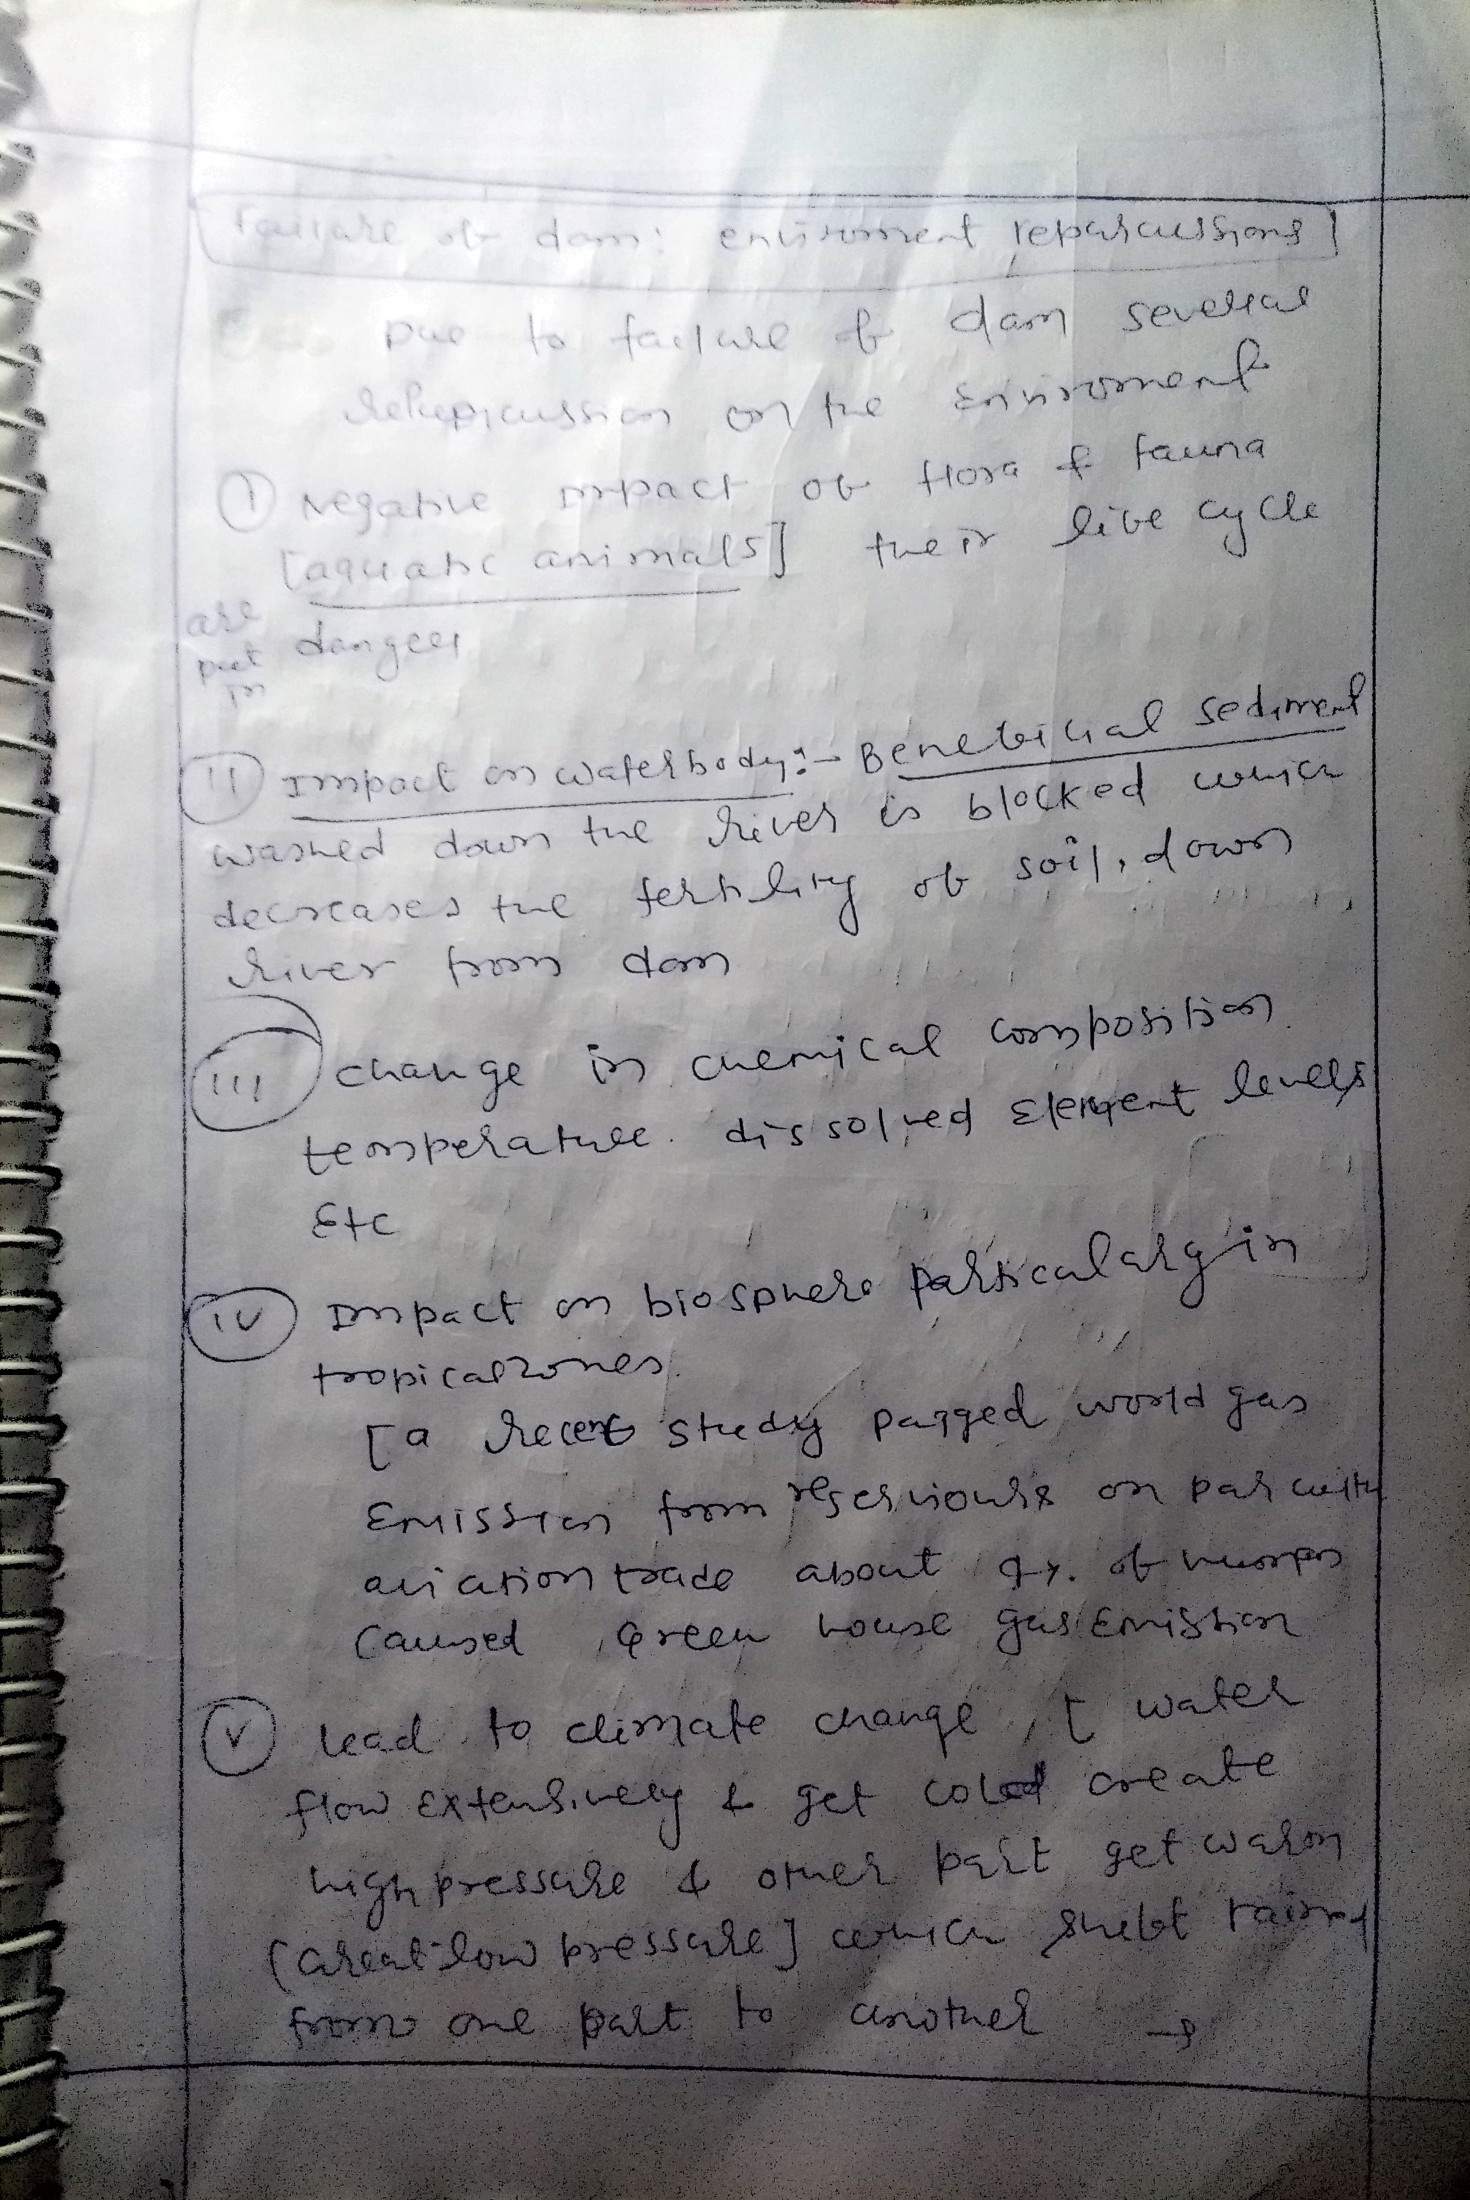 failure of dam: enviroment reparcussions
Due to failure of dam several
on the Enviroment
① Negative impact of flora & fauna
[aquatic animals] their life cycle
are put in danger
(II) Impact on waterbody:- Beneficial sediment
washed down the river is blocked which
decreases the fertility of soil, down
river from dam
(III) change in chemical composition
temperature. dissolved Element levels
Etc
(IV) Impact on biosphere particalary in
tropical zones.
[a recent study pagged world gas
Emission from on par with
aviation trade about of
caused Green house gas Emission
(V) lead to climate change, [ water
flow Extensively & get cold create
high pressure & other part get warm
low pressure] which shift rain
from one part to another →